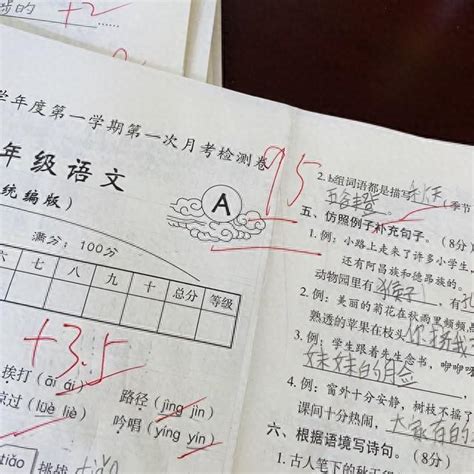 的 +2
学年度第一学期第一次月考检测卷
95
年级语文
A
统编版）
满分：100分
六 七 八 九 十 总分 等级
+3.5
挨打（āi ái）
路径（jìng jìn）
掠过（lüè liè）
吟唱（yíng yín）
tiǎo
挑战
2. b组词语都是描写 秋天（季节
五谷丰登。
五、仿照例子补充句子。（8分）
1. 例：小路上走来了许多小学生，
还有阿昌族和德昂族的。
动物园里有 猴子，有孔
2. 例：美丽的菊花在秋雨里频频点
熟透的苹果在枝头
3. 例：学生跟着先生念书，咿咿呀
妹妹的
4. 例：窗外十分安静，树枝不摇了
课间十分热闹，大家有的
六、根据语境写诗句。（8分）
1. 古人笔下的秋